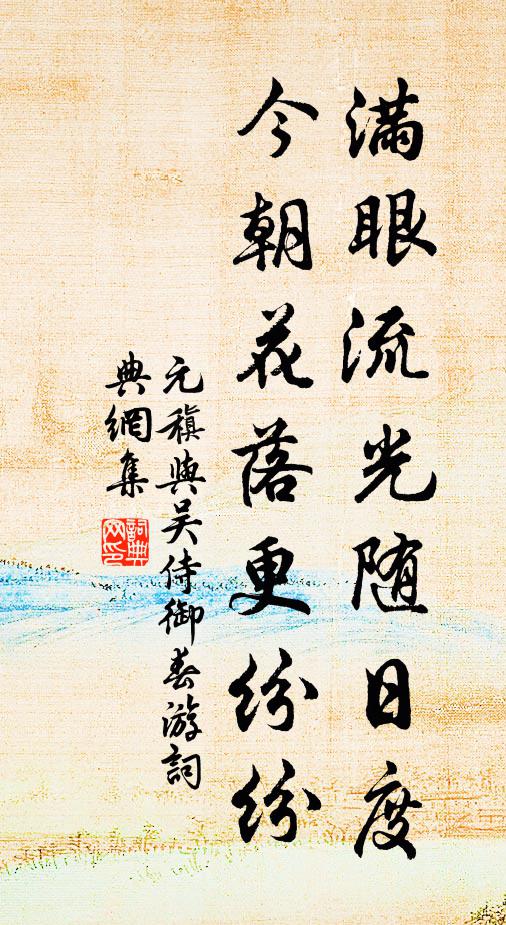 满眼流光随日度
今朝花落更纷纷
元稹與吴侍御春游詞
典網集
詞典
网印